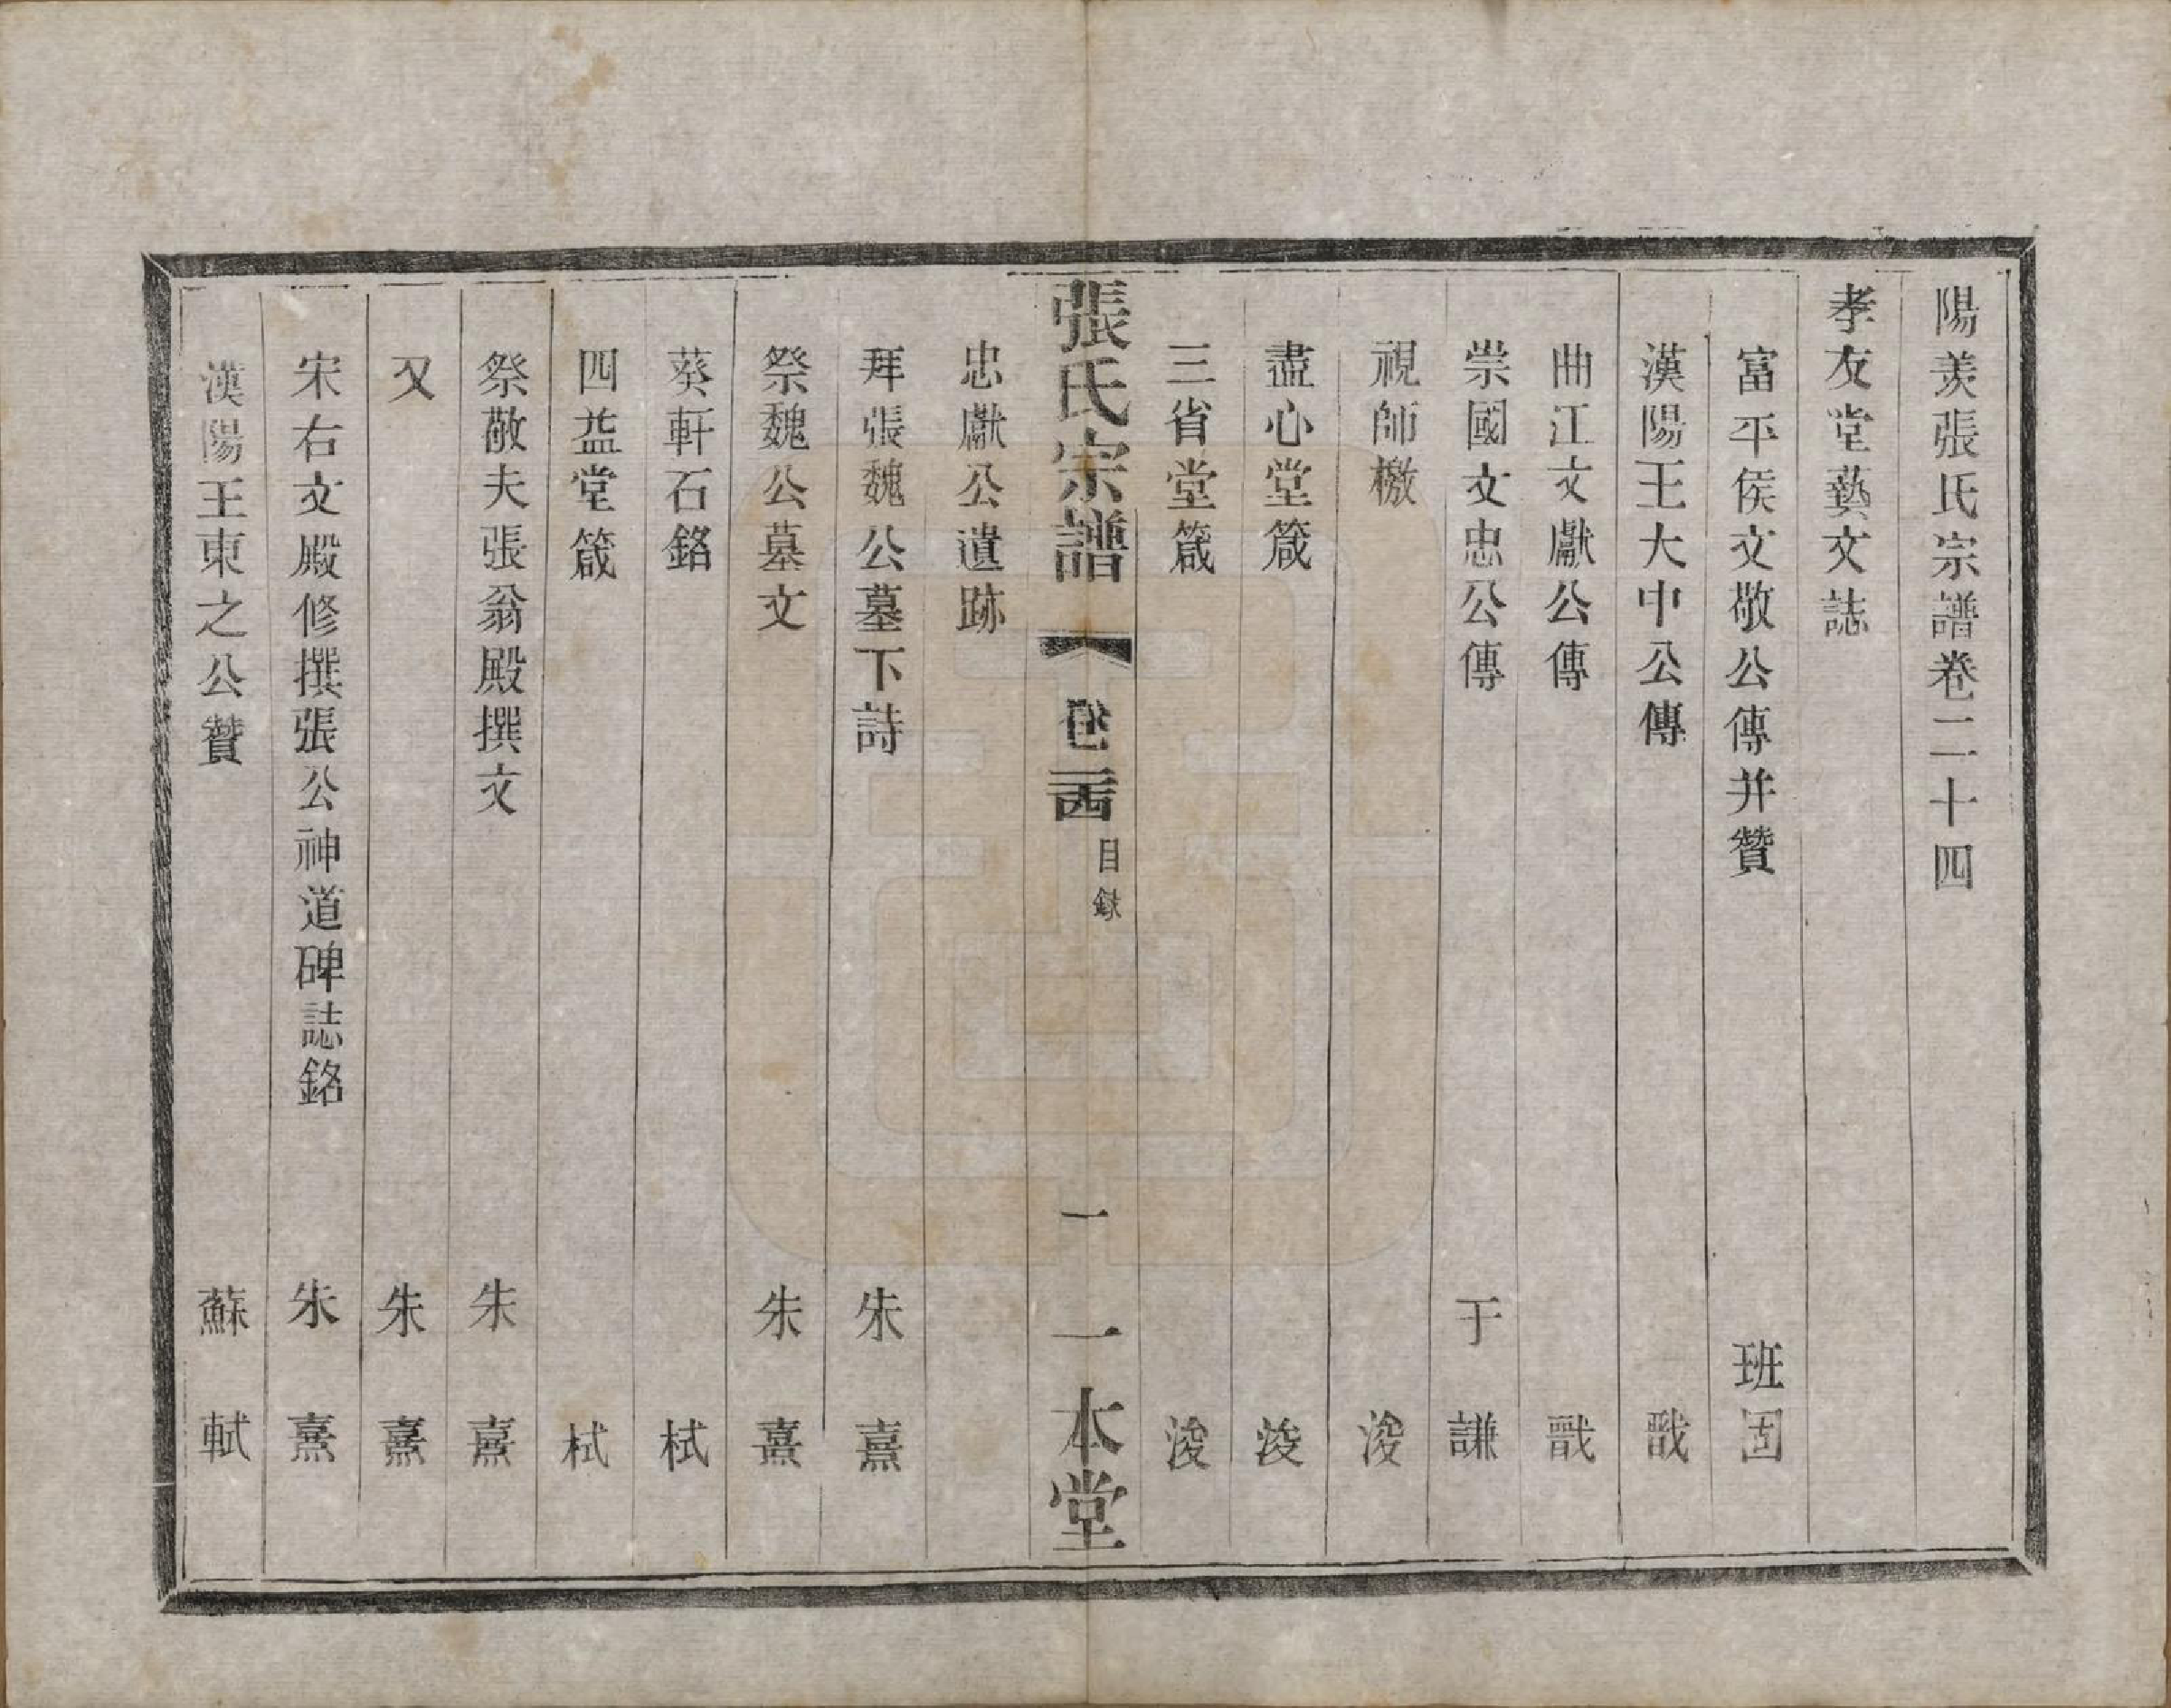 陽羨張氏宗譜卷二十四
孝友堂藝文誌
富平侯文敬公傳并贊 班固
漢陽王大中公傳 戩
曲江文獻公傳 戩
崇國文忠公傳 于謙
視師檄 浚
盡心堂箴 浚
三省堂箴 浚
張氏宗譜 卷二十四 目錄 一 一本堂
忠獻公遺跡
拜張魏公墓下詩 朱熹
祭魏公墓文 朱熹
葵軒石銘 栻
四益堂箴 栻
祭敬夫張翁殿撰文 朱熹
又 朱熹
宋右文殿修撰張公神道碑誌銘 朱熹
漢陽王東之公贊 蘇軾